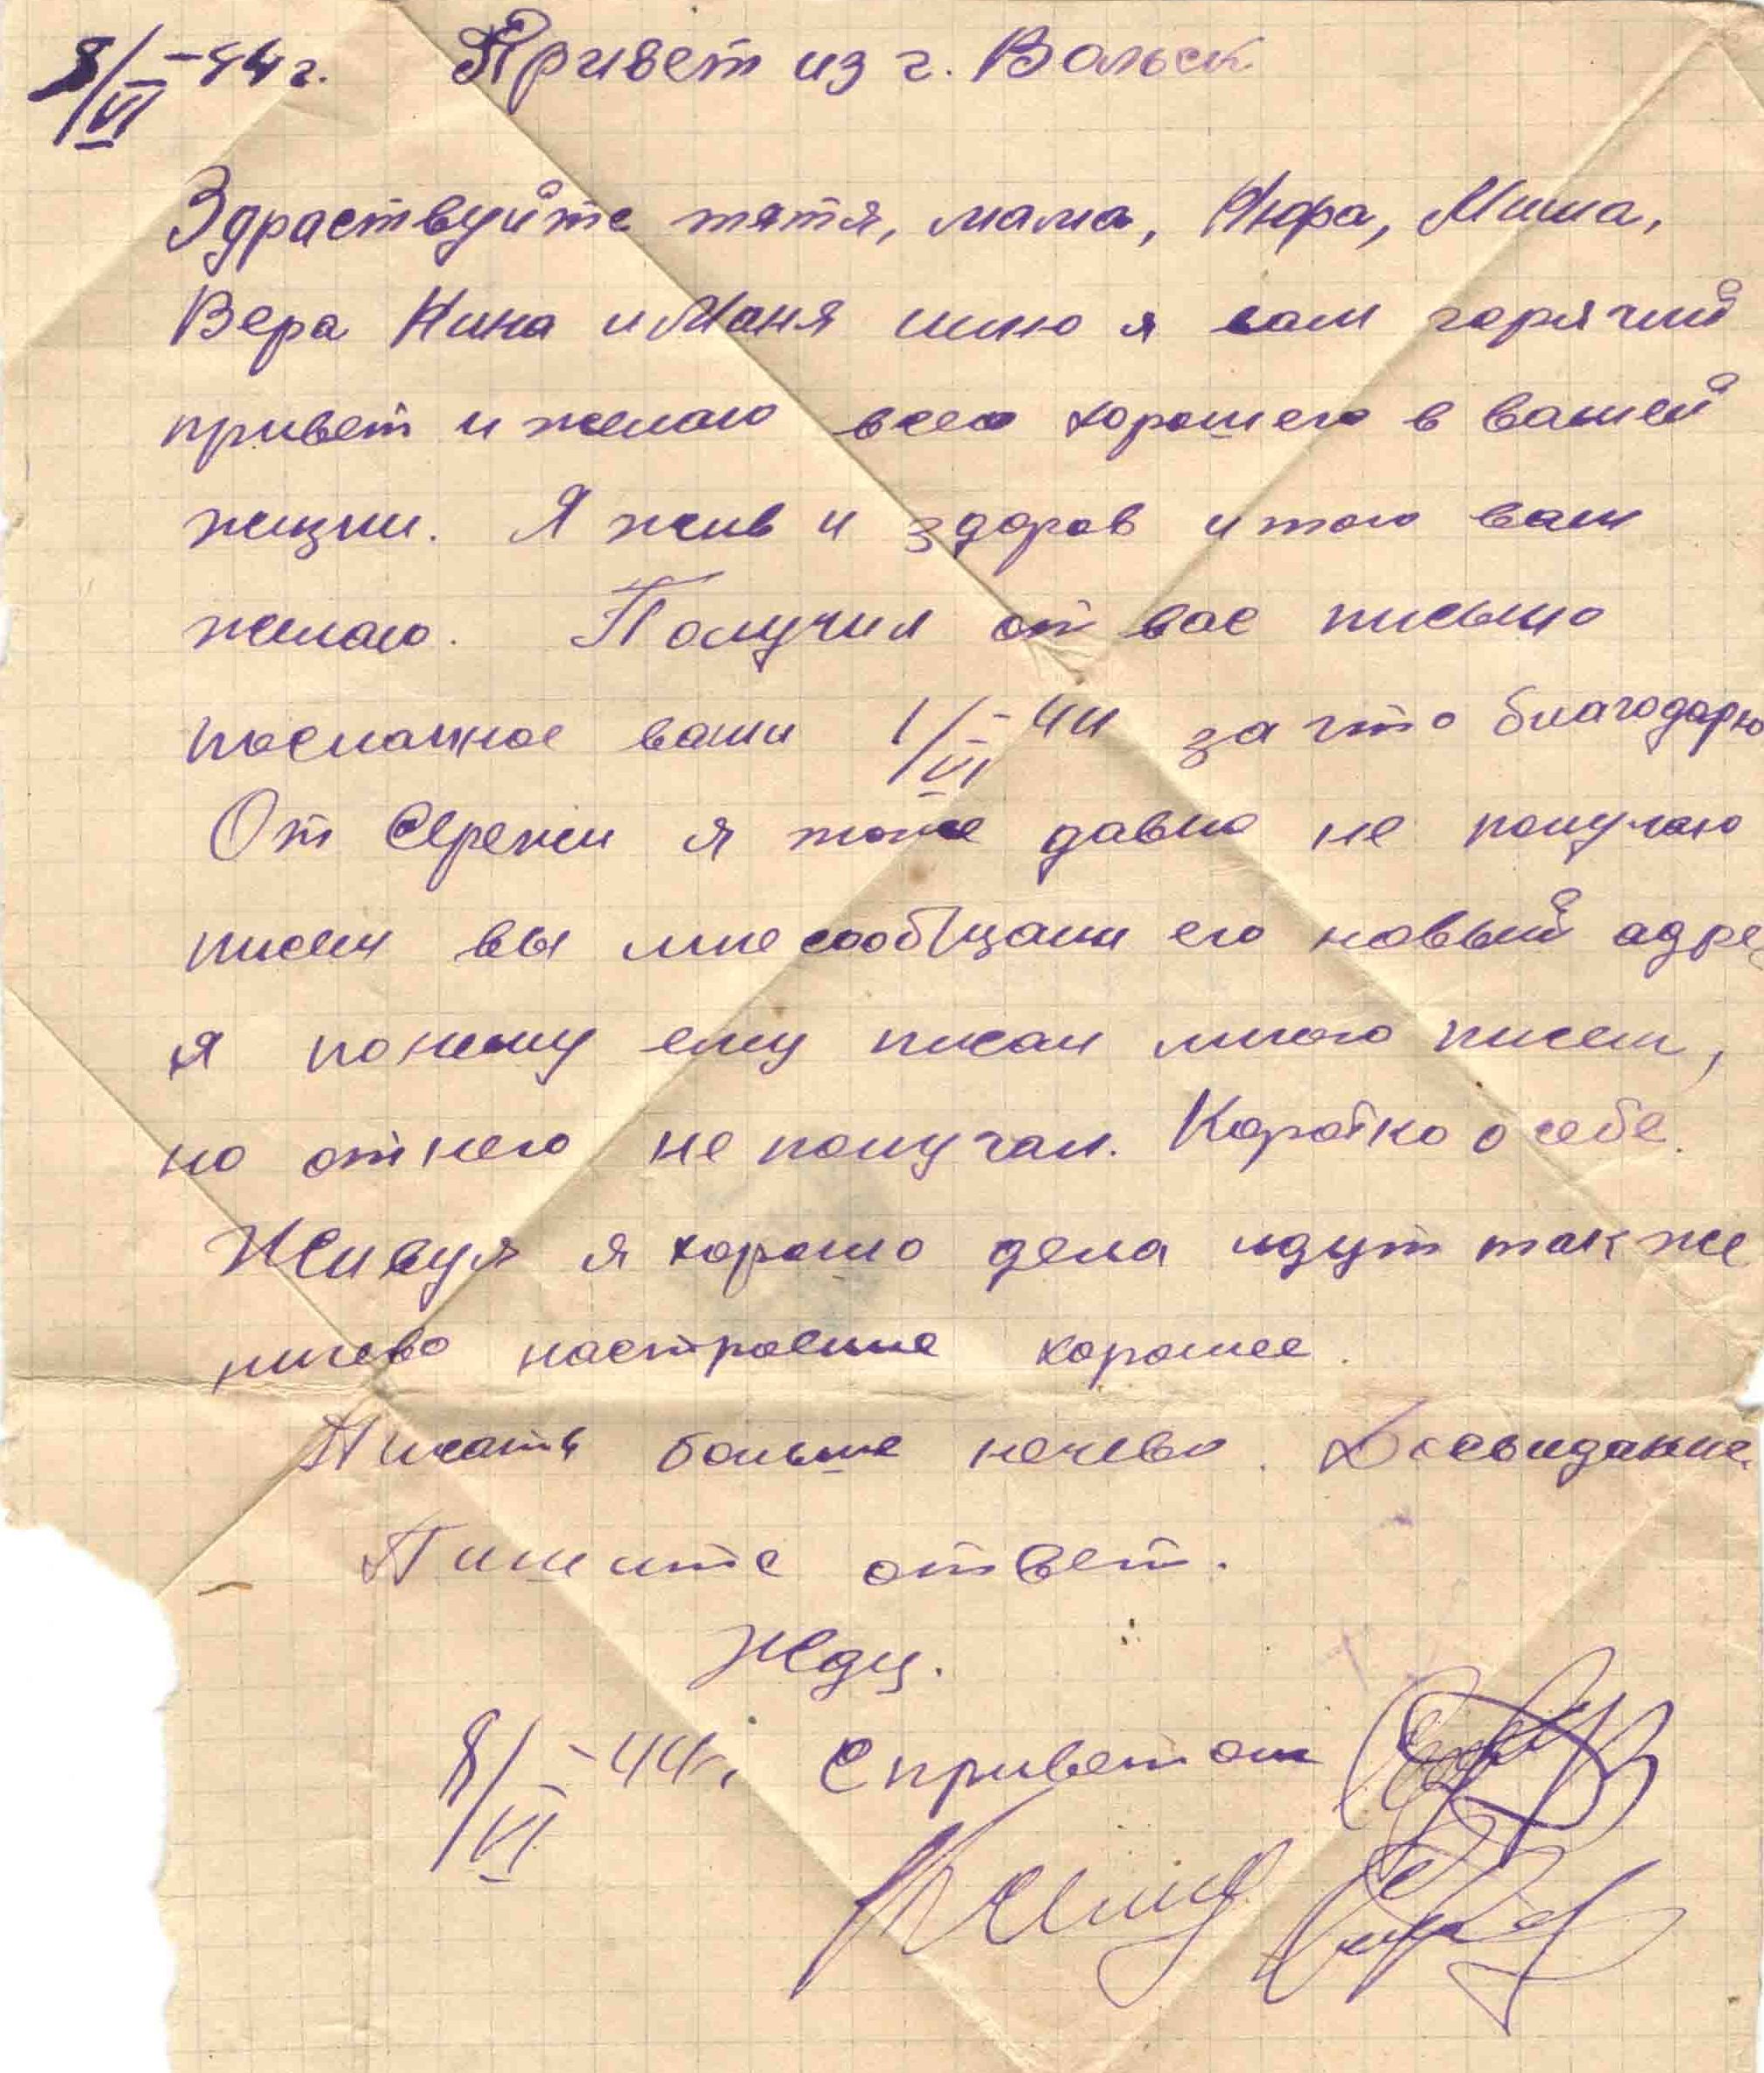 8/VI-44г. Привет из г. Вольск
Здраствуйте тятя, мама, Нюра, Миша,
Вера Нина и Маня шлю я вам горячий
привет и желаю всего хорошего в вашей
жизни. Я жив и здоров и того вам
желаю. Получил от вас письмо
посланное вами 1/VI-44 за что благодарю
От Сережи я тоже давно не получаю
писем вы мне сообщали его новый адре
я по нему ему писал много писем,
но от него не получал. Коротко о себе.
Живуя я хорошо дела идут так же
ничево настроение хорошее.
Писать больше нечево. Досвидание.
Пишите ответ.
Жду.
8/VI-44г. С приветом